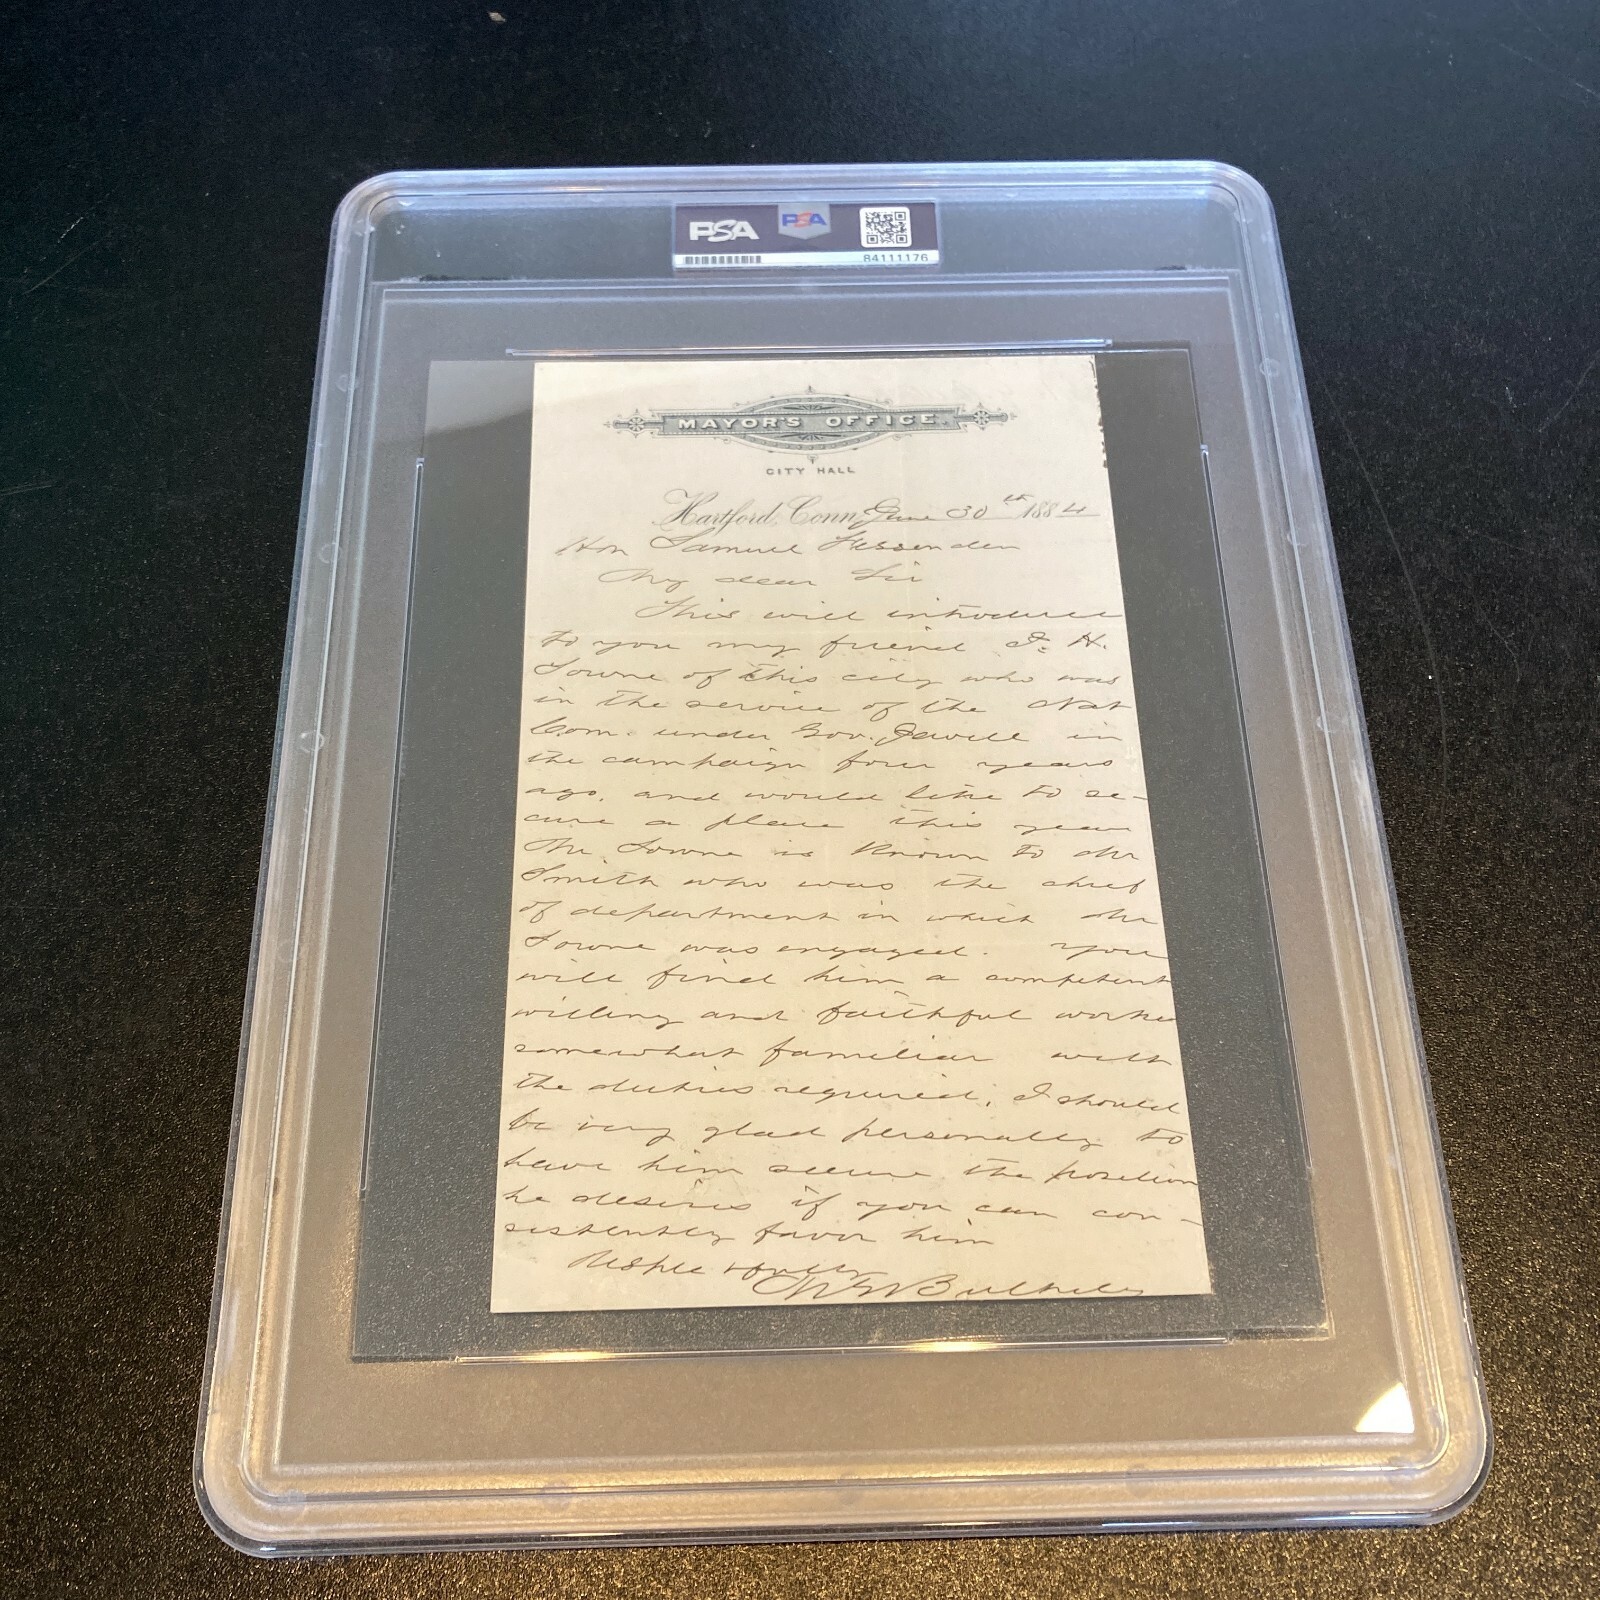 PSA
PSA
84111176
MAYOR'S OFFICE.
CITY HALL
Hartford, Conn. June 30th 1884
Hon Samuel Fessenden
My dear Sir
This will introduce
to you my friend J. H.
Towne of this city who was
in the service of the Nat
Com. under Gov. Jewell in
the campaign four years
ago, and would like to se-
cure a place this year
Mr Towne is known to Mr
Smith who was the chief
of department in which Mr
Towne was engaged. You
will find him a competent
willing and faithful worker
somewhat familiar with
the duties required. I should
be very glad personally to
have him secure the position
he desires if you can con-
sistently favor him
Respectfully
M G Bulkeley